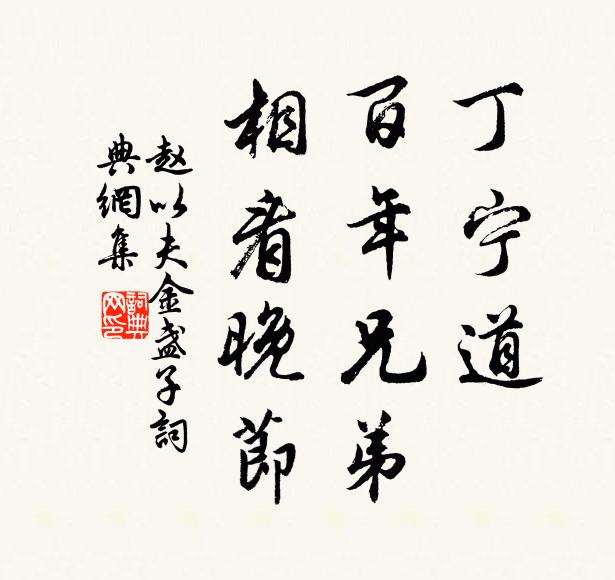 丁宁道
百年兄弟
相看晚節
赵以夫金盏子詞
典網集
詞典网印